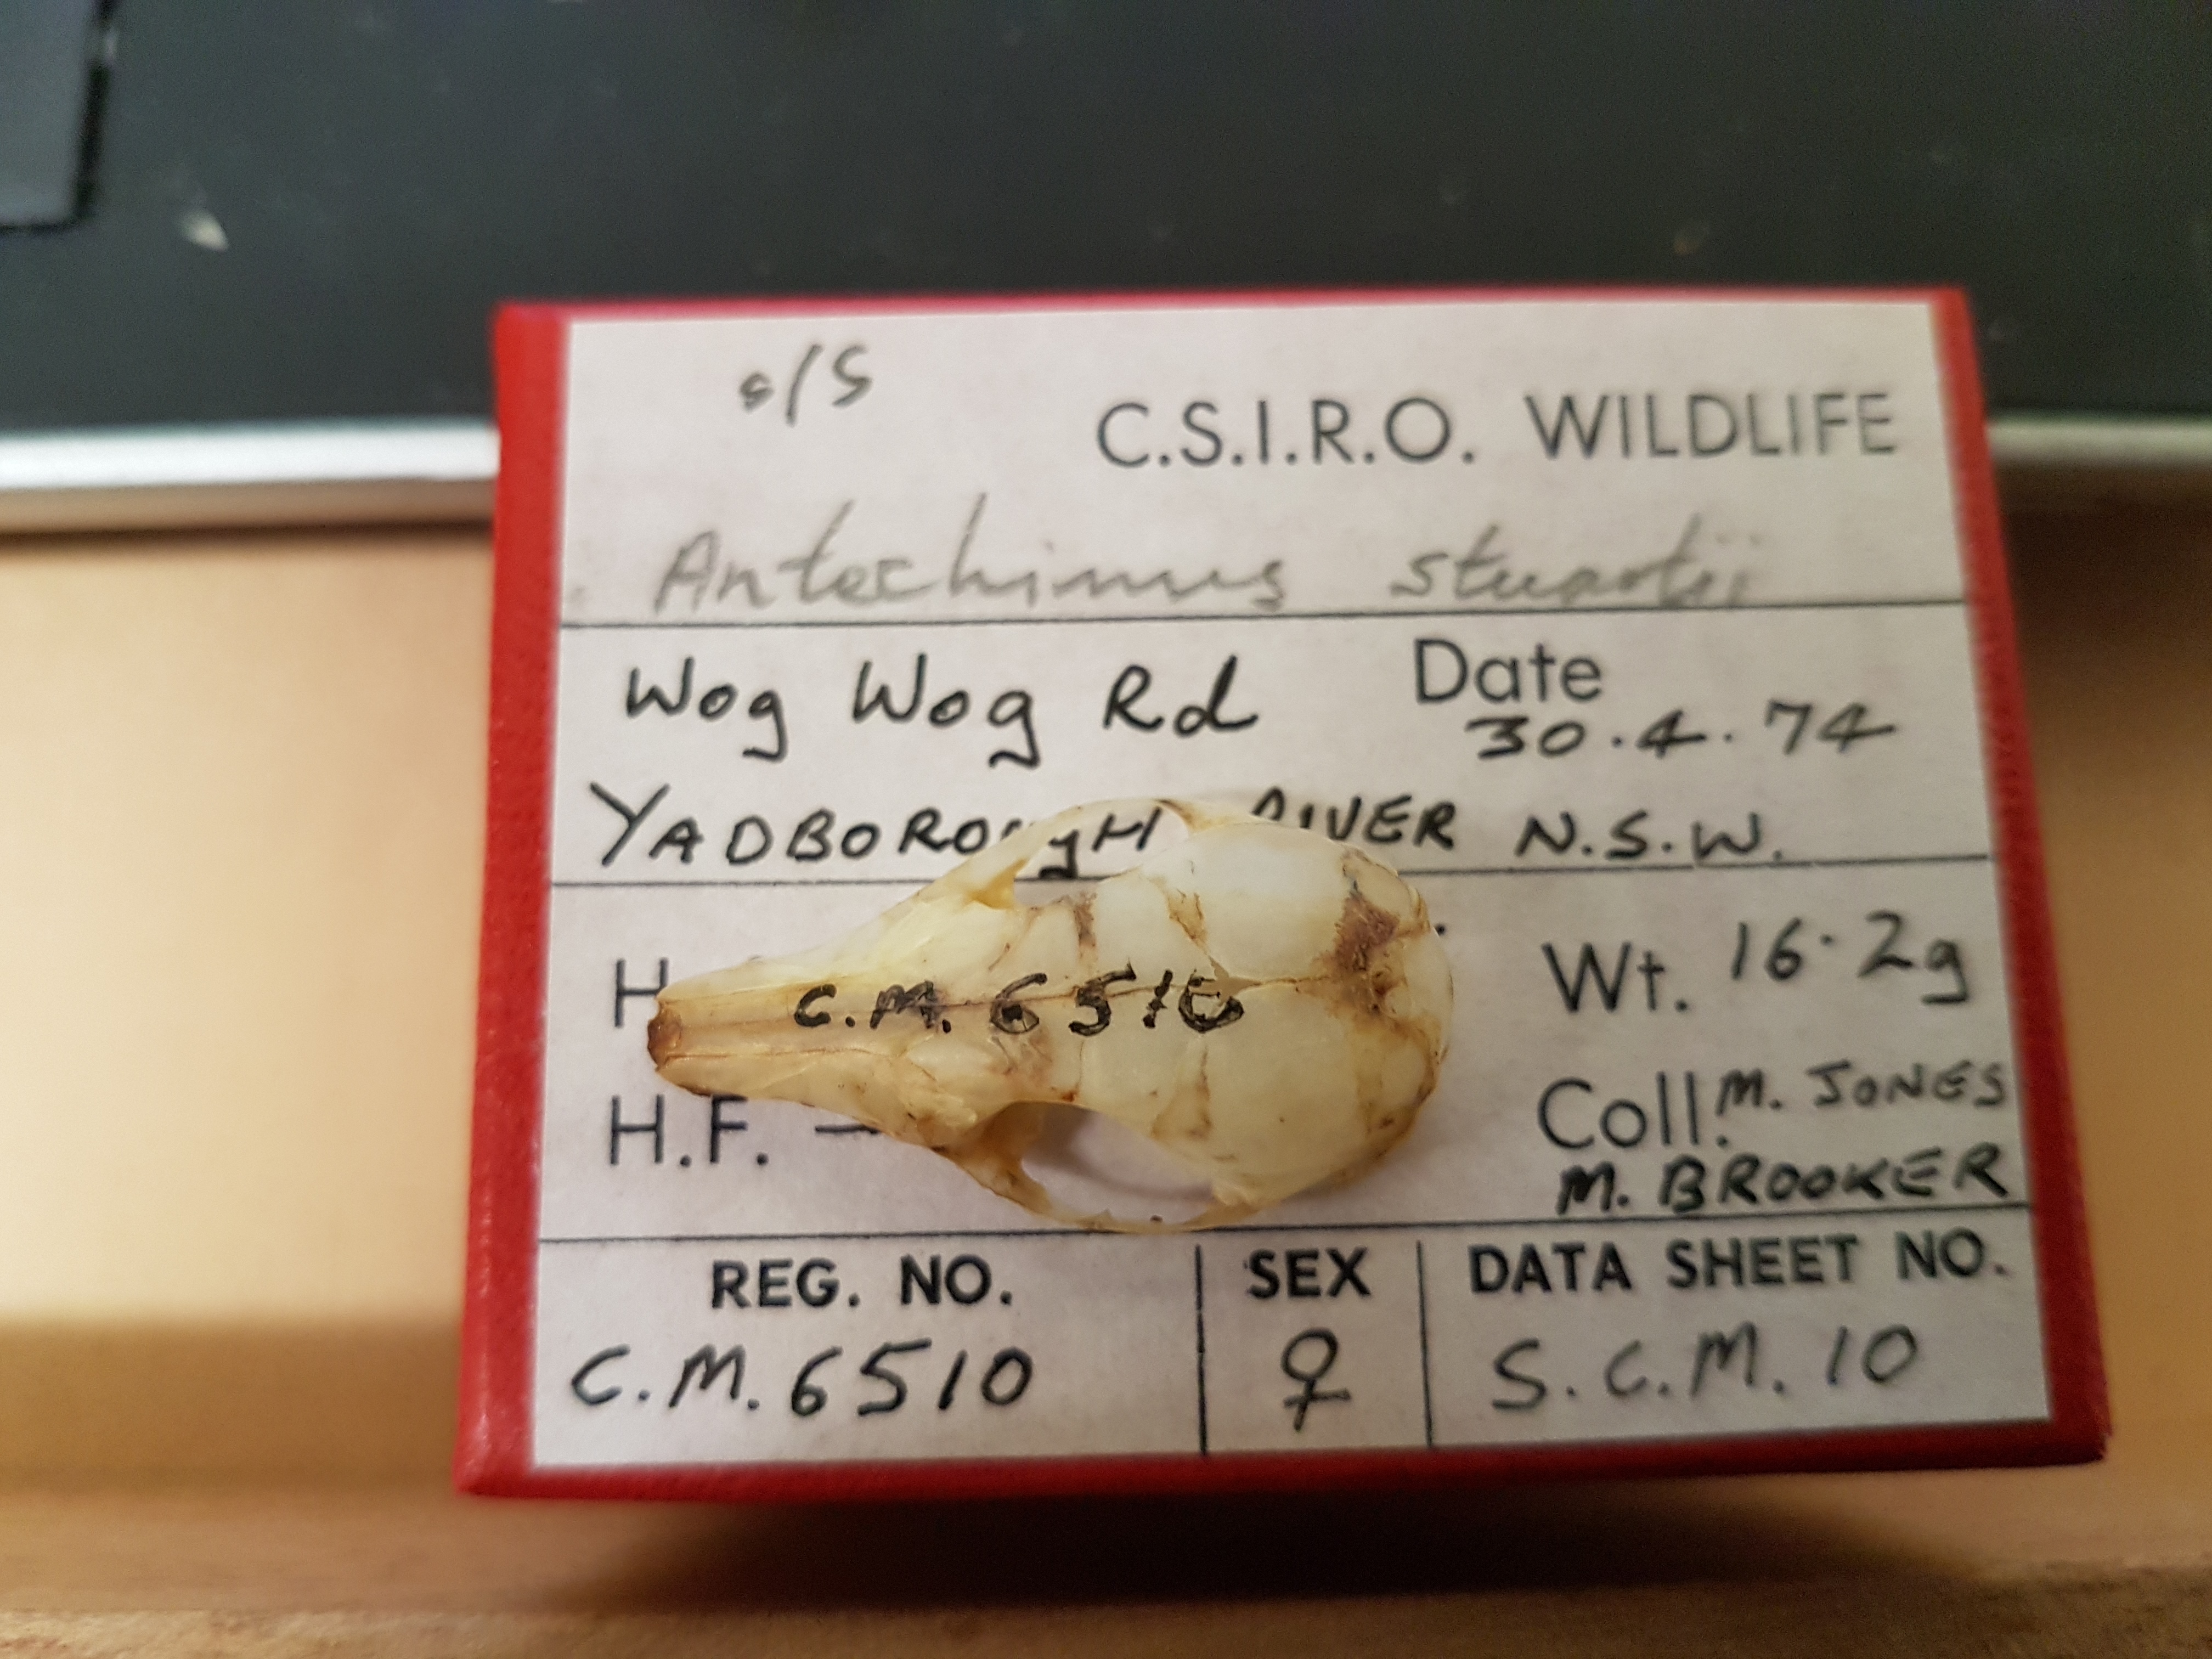 C.S.I.R.O. WILDLIFE
Antechinus stuartii
Wog Wog Rd Date 30.4.74
N.S.W.
H Wt. 16.2g
H.F. Coll. M. JONES
M. BROOKER
REG. NO. SEX DATA SHEET NO.
C.M.6510 ♀ S.C.M.10
C.M.6510